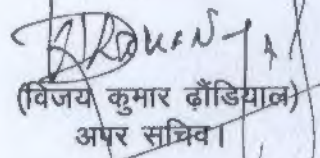 (विजय कुमार ढ़ौंडियाल)
अपर सचिव।